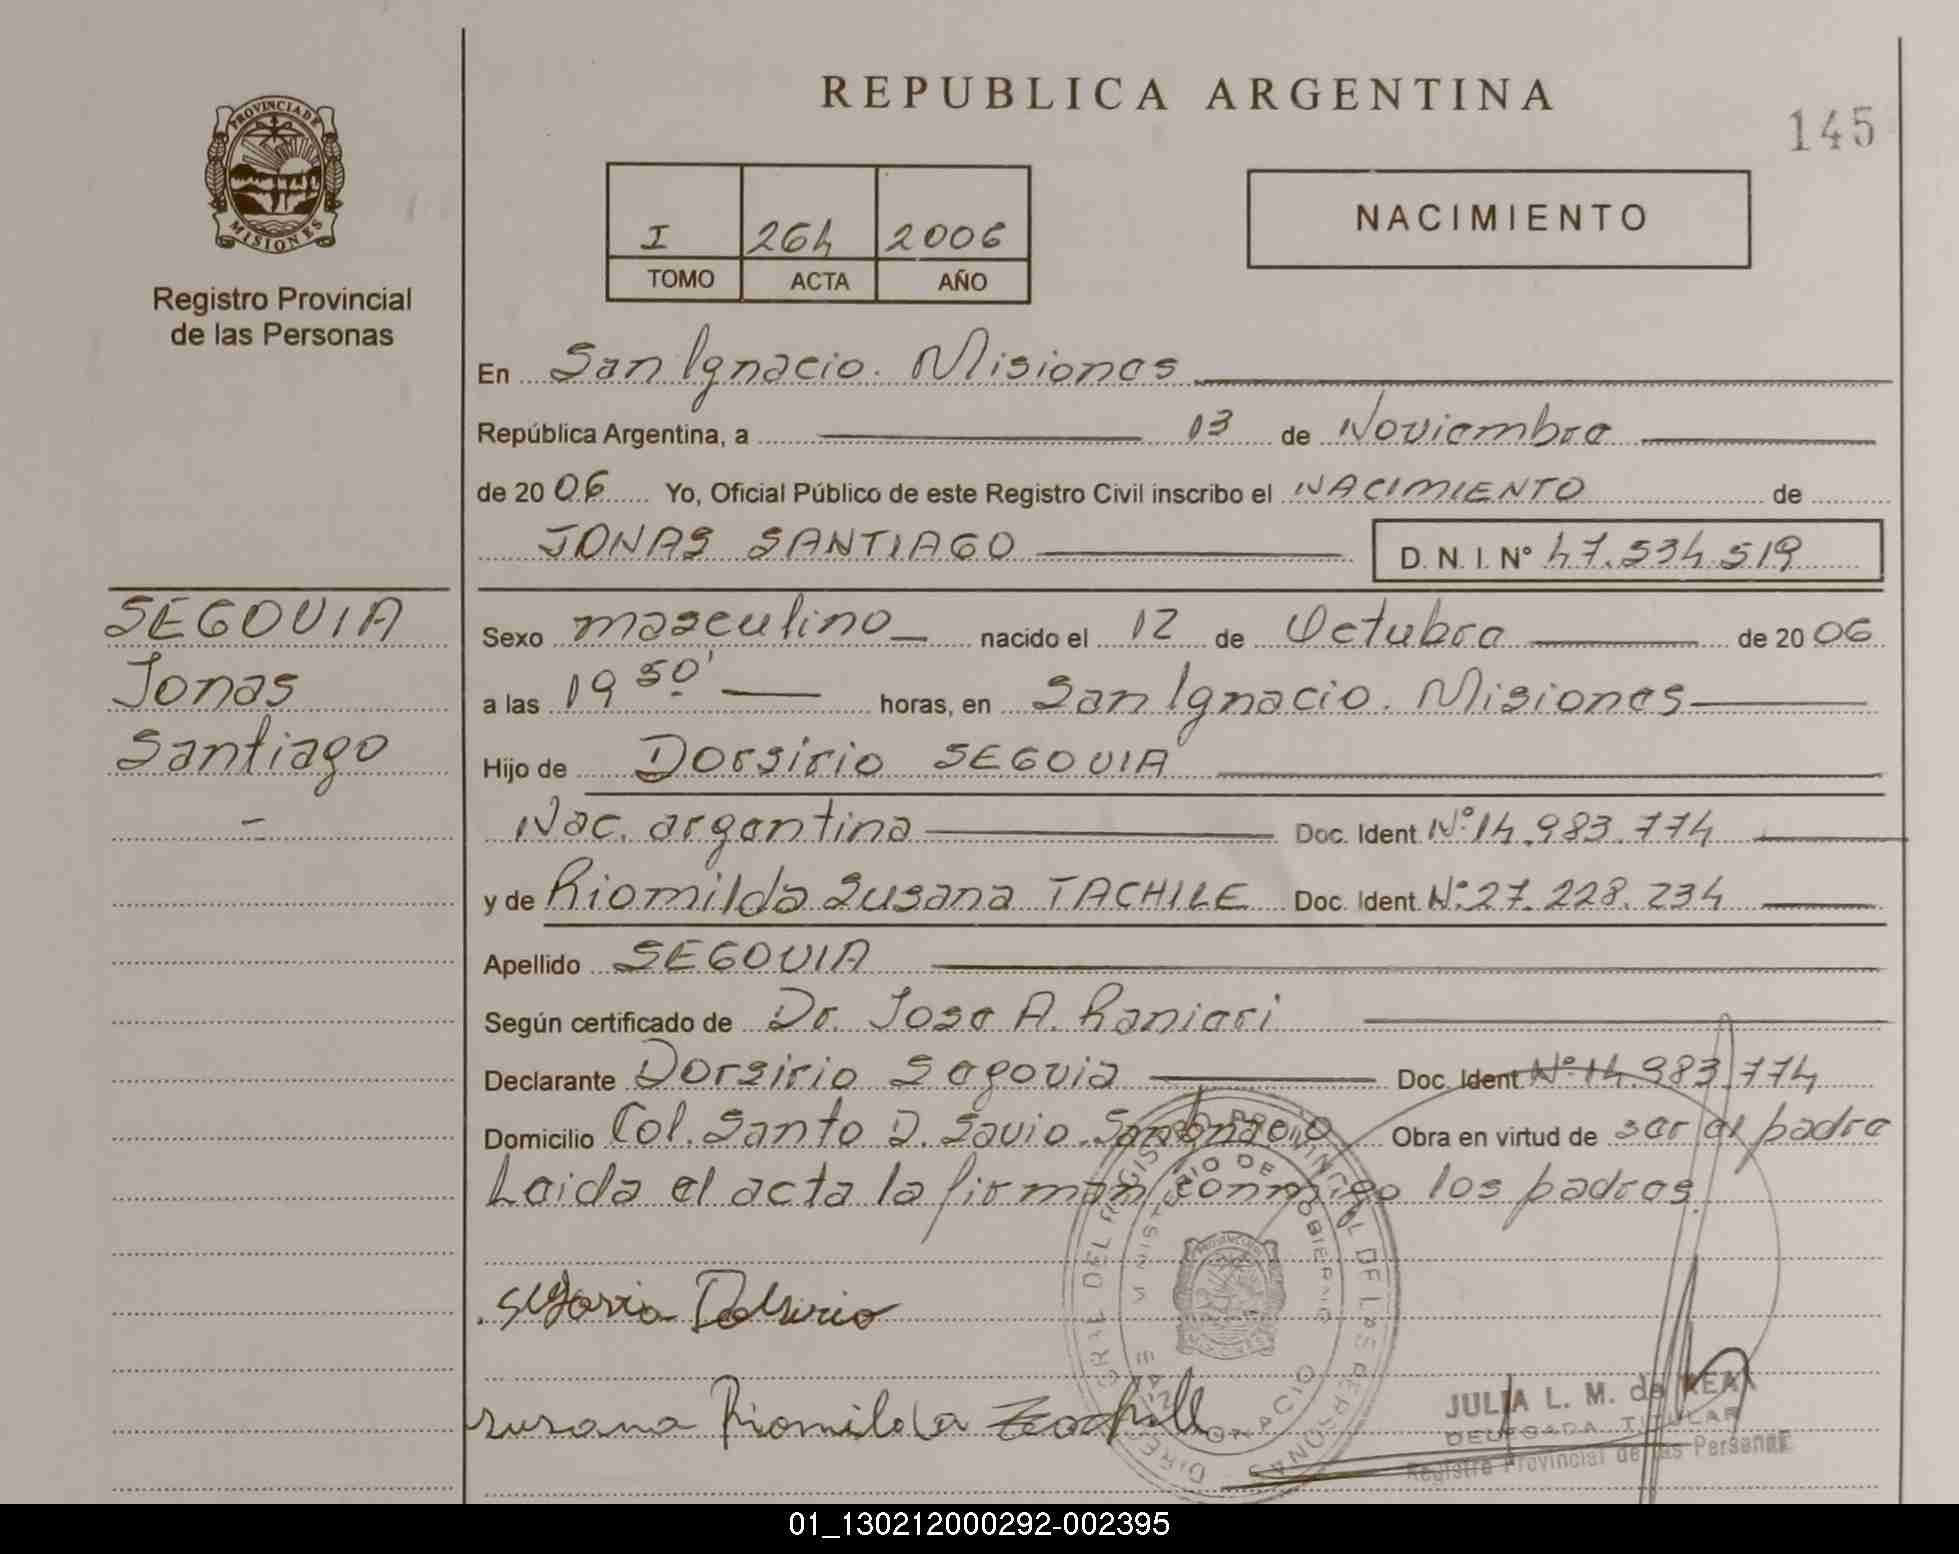 REPUBLICA ARGENTINA
145
PROVINCIA DE
MISIONES
Registro Provincial
de las Personas
I 264 2006
TOMO ACTA AÑO
NACIMIENTO
En San Ignacio. Misiones
República Argentina, a 13 de Noviembre
de 2006 Yo, Oficial Público de este Registro Civil inscribo el NACIMIENTO de
JONAS SANTIAGO D. N. I. N° 47.534.519
SEGOVIA
Jonas
Santiago
Sexo masculino nacido el 12 de Octubre de 2006
a las 19 50' horas, en San Ignacio. Misiones
Hijo de Dorsirio SEGOVIA
Nac. argentina Doc. Ident. N° 14.983.774
y de Riomilda Susana TACHILE Doc. Ident. N° 27.228.234
Apellido SEGOVIA
Según certificado de Dr. Jose A. Ranieri
Declarante Dorsirio Segovia Doc. Ident. N° 14.983.774
Domicilio Col. Santo D. Savio. San Ignacio Obra en virtud de ser el padre
Leida el acta la firman conmigo los padres.
Segovia Dolsirio
susana Riomilda
JULIA L. M. de
DELEGADA TITULAR
Registro Provincial de las Personas
01_130212000292-002395